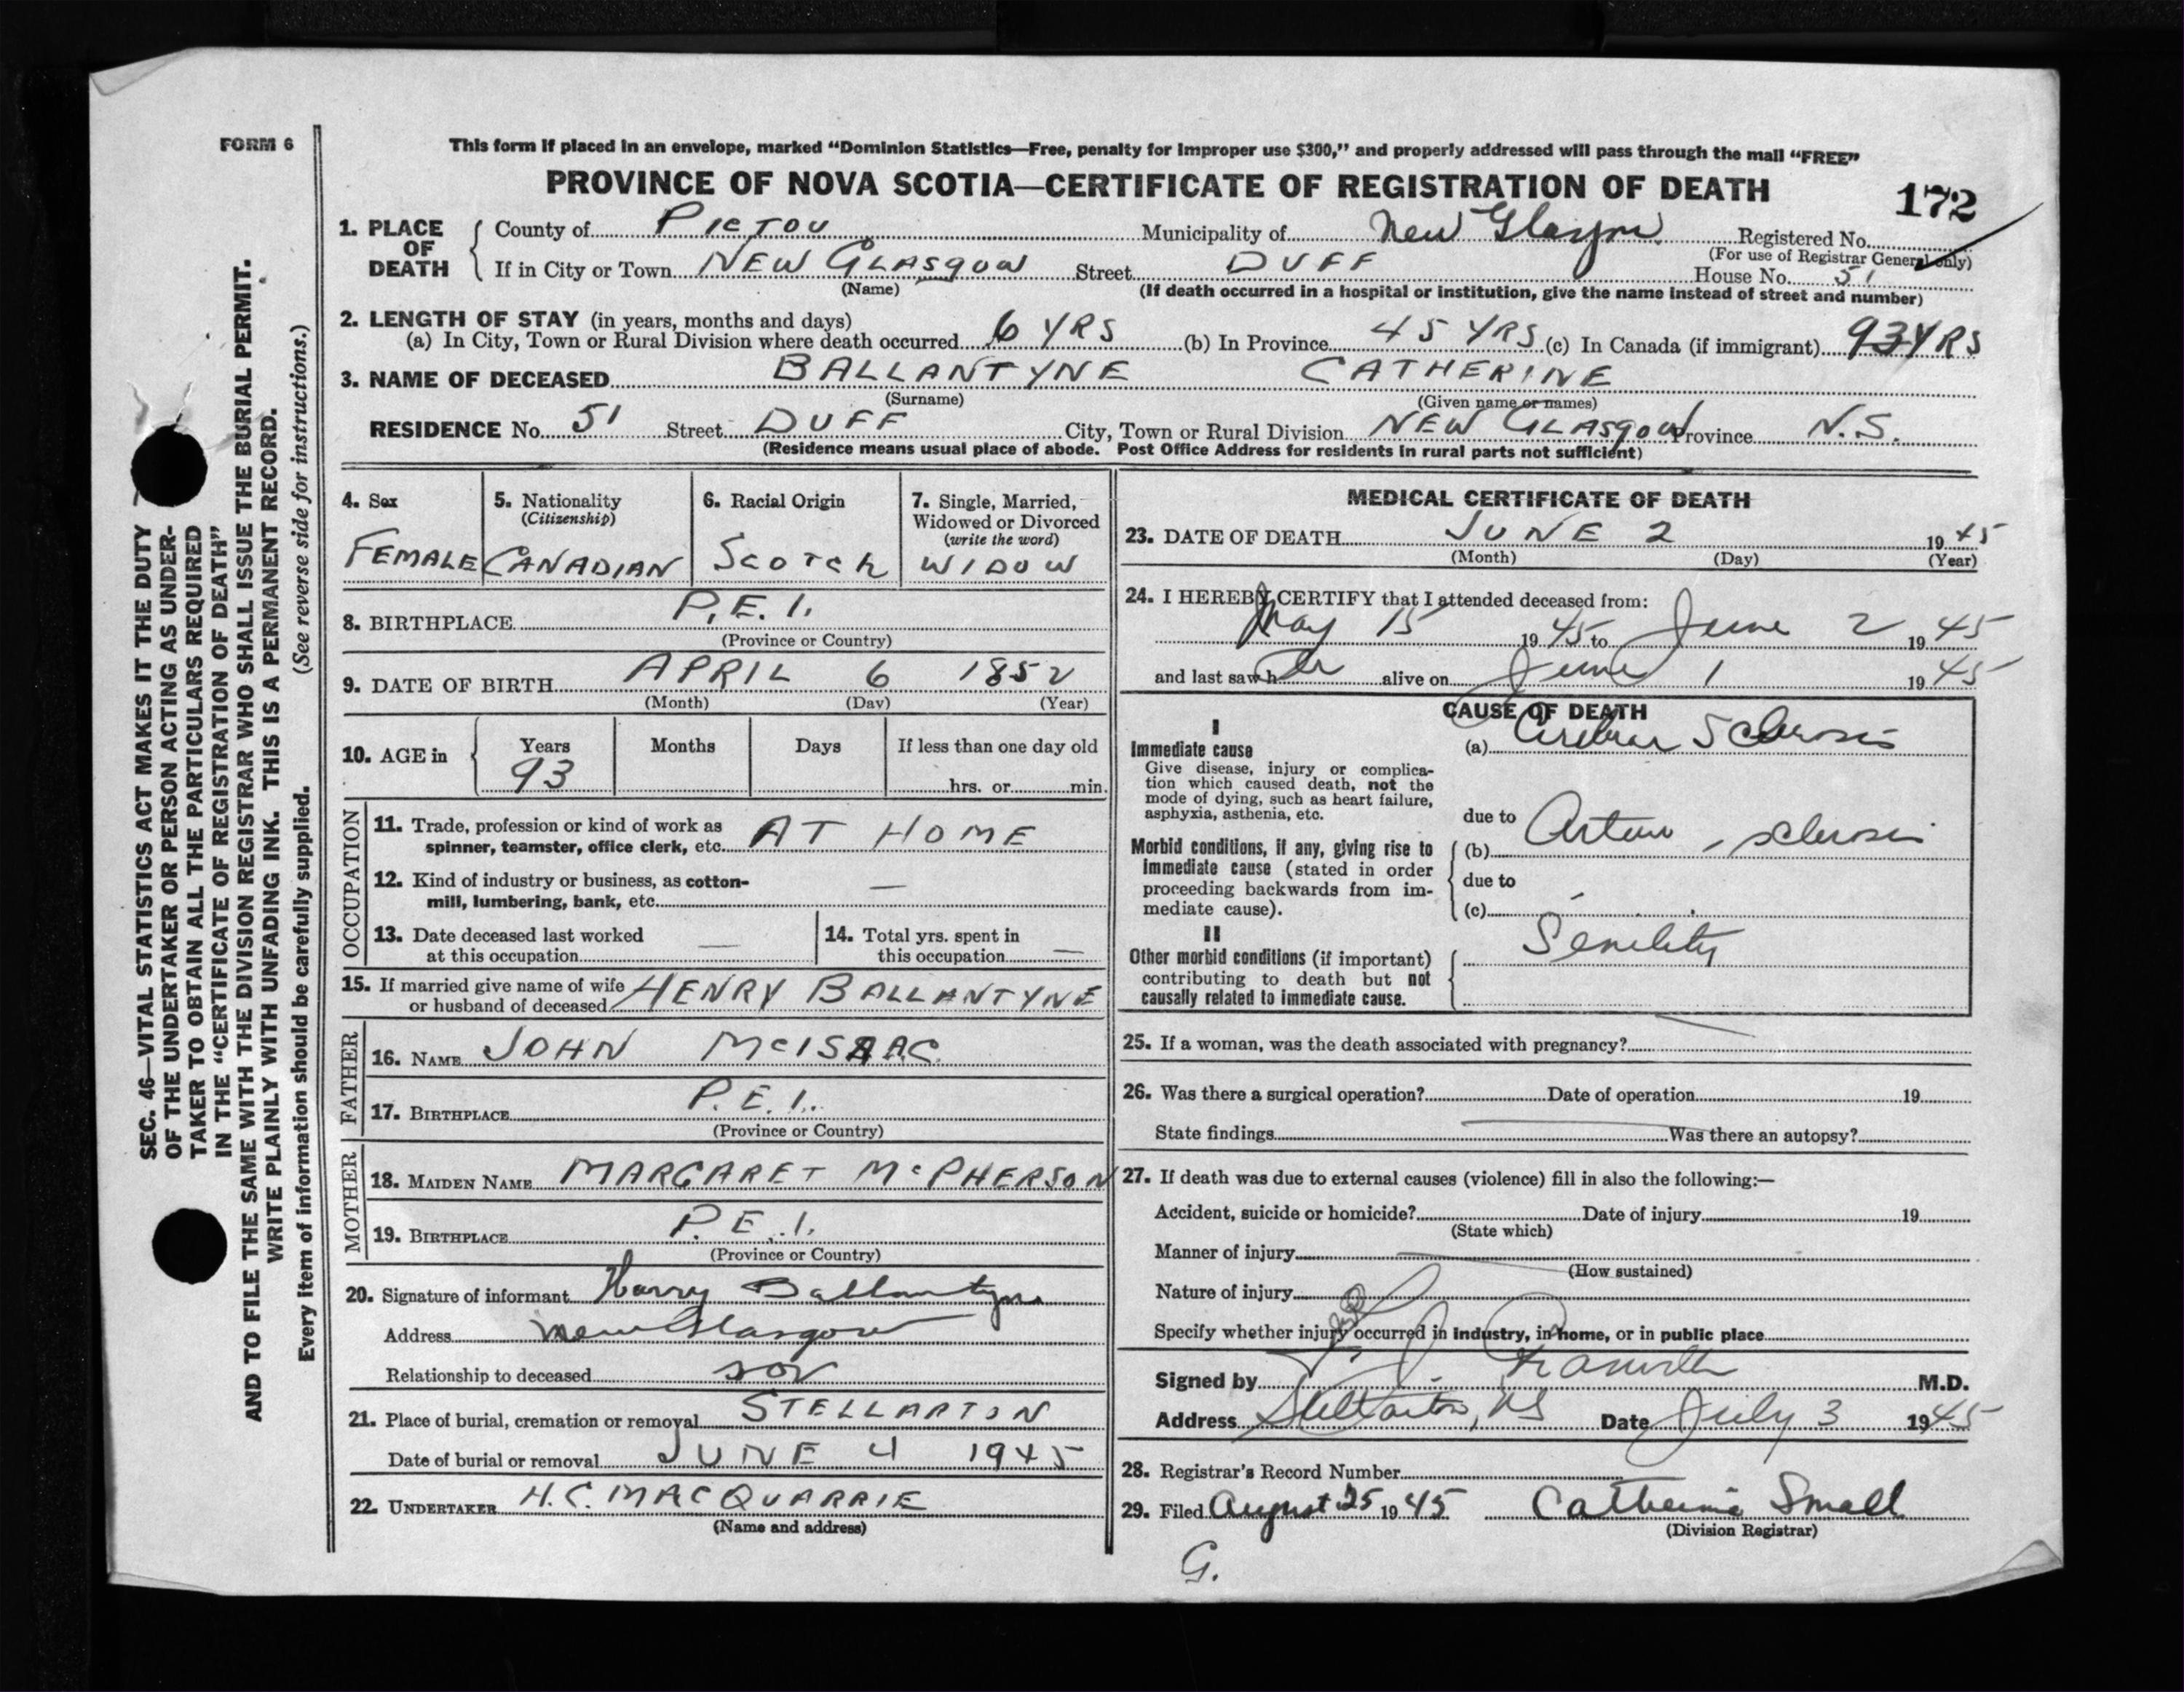 FORM 6
This form if placed in an envelope, marked “Dominion Statistics—Free, penalty for improper use $300,” and properly addressed will pass through the mail “FREE”
PROVINCE OF NOVA SCOTIA—CERTIFICATE OF REGISTRATION OF DEATH
172
1. PLACE OF DEATH
County of PICTOU Municipality of New Glasgow Registered No.
(For use of Registrar General only)
If in City or Town NEW GLASGOW Street DUFF House No. 51
(Name) (If death occurred in a hospital or institution, give the name instead of street and number)
2. LENGTH OF STAY (in years, months and days)
(a) In City, Town or Rural Division where death occurred 6 YRS (b) In Province 45 YRS (c) In Canada (if immigrant) 93 YRS
3. NAME OF DECEASED BALLANTYNE CATHERINE
(Surname) (Given name or names)
RESIDENCE No. 51 Street DUFF City, Town or Rural Division NEW GLASGOW Province N.S.
(Residence means usual place of abode. Post Office Address for residents in rural parts not sufficient)
4. Sex
FEMALE
5. Nationality
(Citizenship)
CANADIAN
6. Racial Origin
SCOTCH
7. Single, Married,
Widowed or Divorced
(write the word)
WIDOW
8. BIRTHPLACE P.E.I.
(Province or Country)
9. DATE OF BIRTH APRIL 6 1852
(Month) (Day) (Year)
10. AGE in
Years Months Days If less than one day old
93 hrs. or min.
OCCUPATION
11. Trade, profession or kind of work as
spinner, teamster, office clerk, etc. AT HOME
12. Kind of industry or business, as cotton-
mill, lumbering, bank, etc. —
13. Date deceased last worked
at this occupation —
14. Total yrs. spent in
this occupation —
15. If married give name of wife
or husband of deceased HENRY BALLANTYNE
FATHER
16. NAME JOHN McISAAC
17. BIRTHPLACE P.E.I.
(Province or Country)
MOTHER
18. MAIDEN NAME MARGARET McPHERSON
19. BIRTHPLACE P.E.I.
(Province or Country)
20. Signature of informant Harry Ballantyne
Address New Glasgow
Relationship to deceased son
21. Place of burial, cremation or removal STELLARTON
Date of burial or removal JUNE 4 1945
22. UNDERTAKER H.C. MACQUARRIE
(Name and address)
MEDICAL CERTIFICATE OF DEATH
23. DATE OF DEATH JUNE 2 1945
(Month) (Day) (Year)
24. I HEREBY CERTIFY that I attended deceased from:
May 15 1945 to June 2 1945
and last saw her alive on June 1 1945
CAUSE OF DEATH
I
Immediate cause
Give disease, injury or complica-
tion which caused death, not the
mode of dying, such as heart failure,
asphyxia, asthenia, etc.
(a) Cerebral Sclerosis
due to
Morbid conditions, if any, giving rise to
immediate cause (stated in order
proceeding backwards from im-
mediate cause).
(b) Arterio - sclerosis
due to
(c)
II
Other morbid conditions (if important)
contributing to death but not
causally related to immediate cause.
Senility
25. If a woman, was the death associated with pregnancy?
26. Was there a surgical operation? Date of operation 19
State findings Was there an autopsy?
27. If death was due to external causes (violence) fill in also the following:—
Accident, suicide or homicide? Date of injury 19
(State which)
Manner of injury
(How sustained)
Nature of injury
Specify whether injury occurred in industry, in home, or in public place
Signed by M.D.
Address Stellarton, NS Date July 3 1945
28. Registrar's Record Number
29. Filed August 25 1945 Catherine Small
(Division Registrar)
G.
SEC. 46—VITAL STATISTICS ACT MAKES IT THE DUTY
OF THE UNDERTAKER OR PERSON ACTING AS UNDER-
TAKER TO OBTAIN ALL THE PARTICULARS REQUIRED
IN THE “CERTIFICATE OF REGISTRATION OF DEATH”
AND TO FILE THE SAME WITH THE DIVISION REGISTRAR WHO SHALL ISSUE THE BURIAL PERMIT.
WRITE PLAINLY WITH UNFADING INK. THIS IS A PERMANENT RECORD.
Every item of information should be carefully supplied. (See reverse side for instructions.)